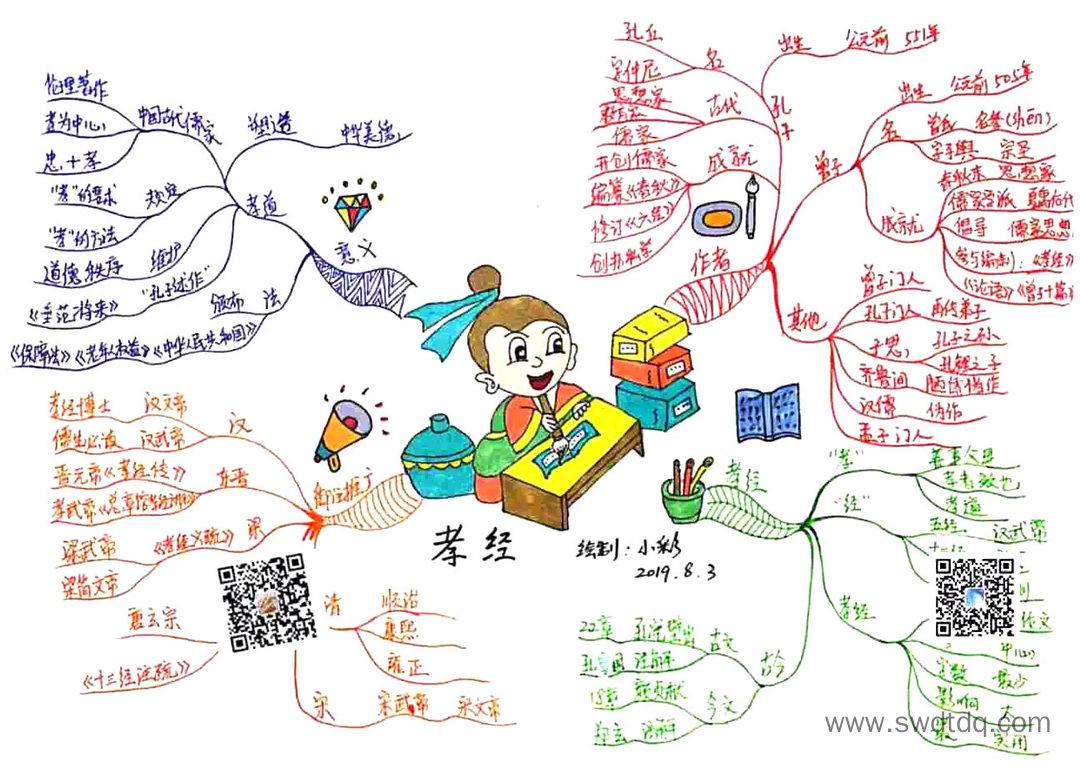 孝经
绘制：小彩
2019.8.3
作者
孔子
出生 公元前 551年
名
孔丘
字仲尼
古代
思想家
教育家
儒家
成就
开创儒家
编纂《春秋》
修订《六经》
创办私学
曾子
出生 公元前505年
名
曾氏 名参(shēn)
字子舆 宗圣
成就
春秋末 思想家
儒家学派
倡导 儒家思想
参与编制：《孝经》
《论语》《曾子十篇》
其他
曾子门人
孔子门人 两代弟子
子思 孔子之孙
孔鲤之子
齐鲁间 陋儒伪作
汉儒 伪作
孟子门人
孝经
"孝"
善事父母
孝道
"经"
五经 汉武帝
孝经
中心
字数 最少
影响 大
实用
古今
古文
22章 孔宅壁出
孔安国 注解
今文
18章
郑玄 注解
御注推广
汉
孝经博士 汉文帝
儒生必读 汉武帝
东晋
晋元帝《孝经传》
梁
梁武帝 《孝经义疏》
梁简文帝
唐玄宗
《十三经注疏》
清
顺治
康熙
雍正
宋
宋武帝 宋文帝
意义
孝道
中华美德
中国古代儒家
伦理著作
孝为中心
忠+孝
规定
"孝"的要求
"孝"的方法
维护
道德 秩序
"孔子述作"
《垂范将来》
颁布 法
《保障法》《老年人权益》《中华人民共和国》
www.swdtdq.com